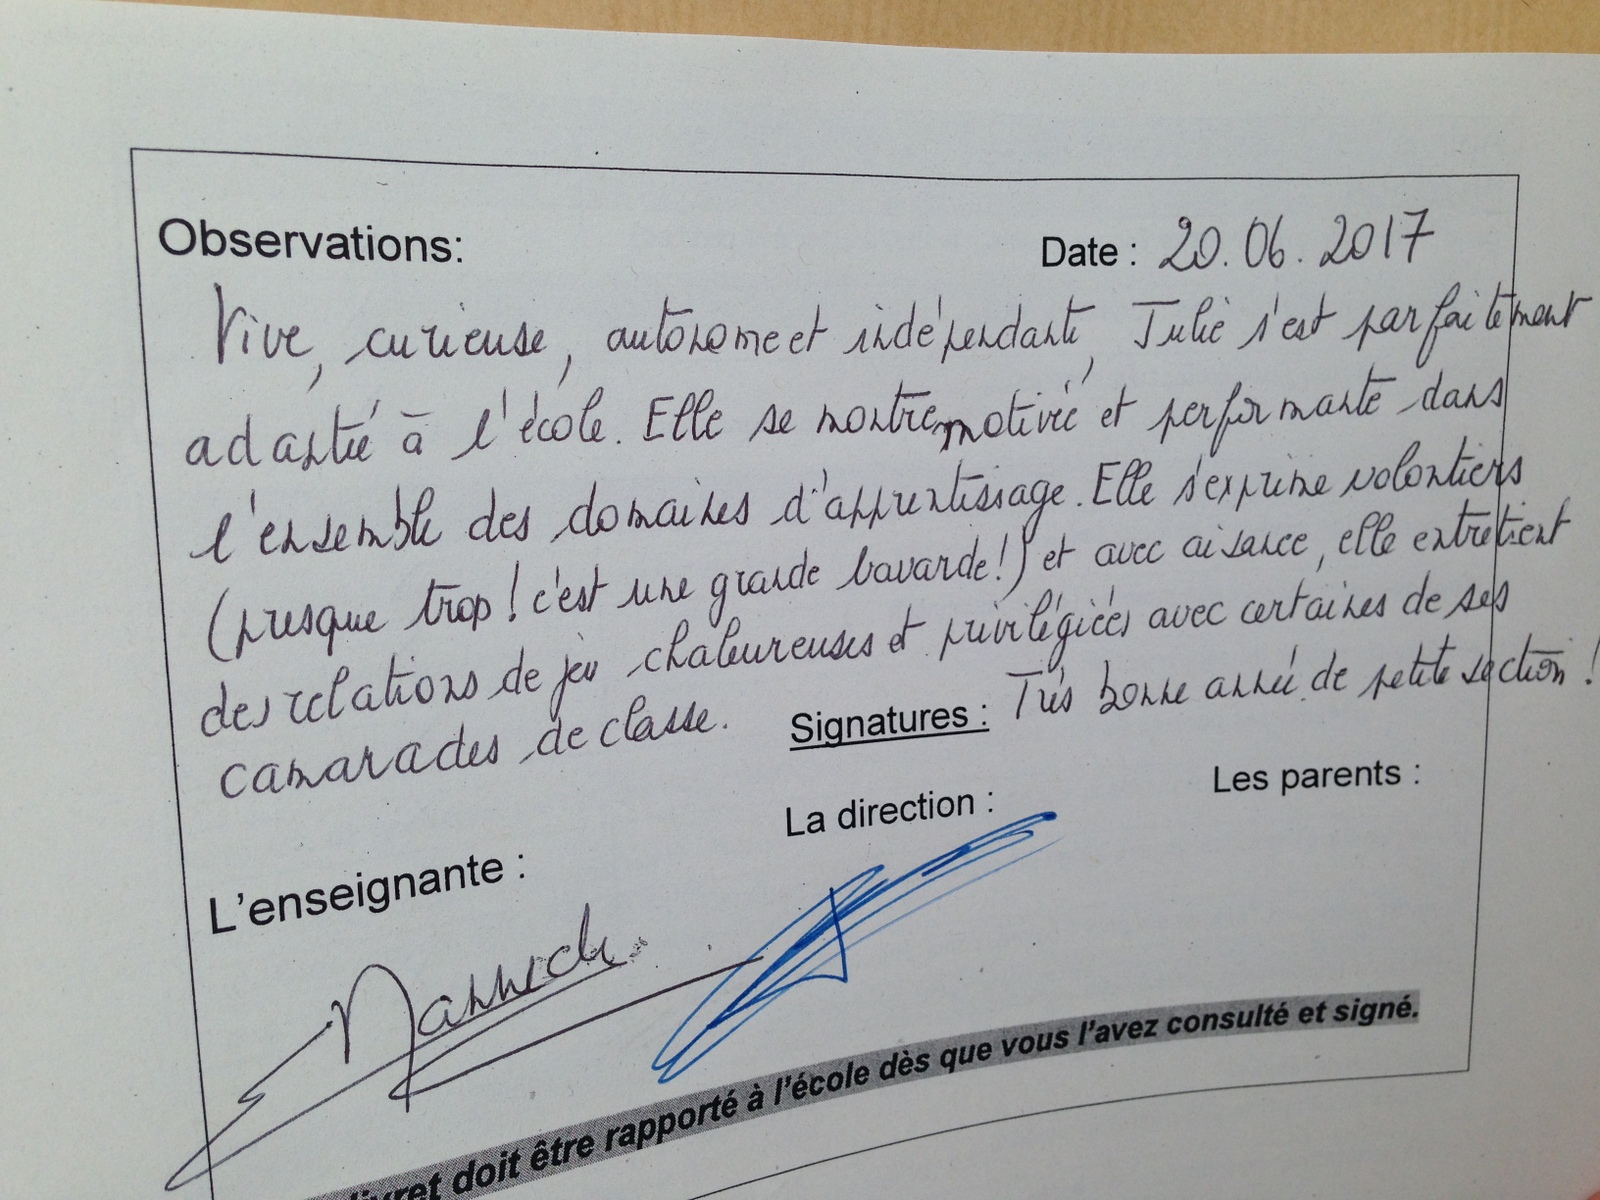 Observations:
Date : 20.06.2017
Vive, curieuse, autonome et indépendante, Julie s'est parfaitement
adaptée à l'école. Elle se montre motivée et performante dans
l'ensemble des domaines d'apprentissage. Elle s'exprime volontiers
(presque trop ! c'est une grande bavarde !) et avec aisance, elle entretient
des relations de jeu chaleureuses et privilégiées avec certaines de ses
camarades de classe.
Signatures : Très bonne année de petite section !
La direction :
Les parents :
L'enseignante :
livret doit être rapporté à l'école dès que vous l'avez consulté et signé.